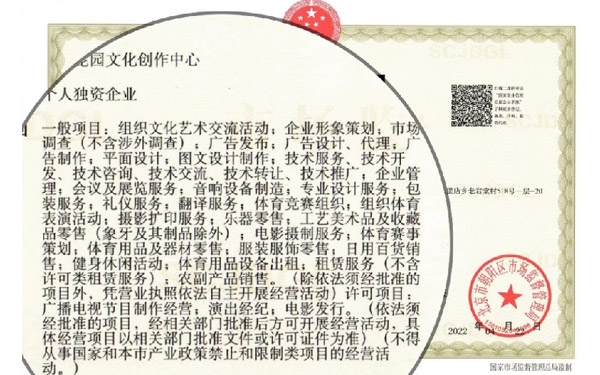 花园文化创作中心
个人独资企业
一般项目：组织文化艺术交流活动；企业形象策划；市场
调查（不含涉外调查）；广告发布；广告设计、代理；广
告制作；平面设计；图文设计制作；技术服务、技术开
发、技术咨询、技术交流、技术转让、技术推广；企业管
理；会议及展览服务；音响设备制造；专业设计服务；包
装服务；礼仪服务；翻译服务；体育竞赛组织；组织体育
表演活动；摄影扩印服务；乐器零售；工艺美术品及收藏
品零售（象牙及其制品除外）；电影摄制服务；体育赛事
策划；体育用品及器材零售；服装服饰零售；日用百货销
售；健身休闲活动；体育用品设备出租；租赁服务（不含
许可类租赁服务）；农副产品销售。（除依法须经批准的
项目外，凭营业执照依法自主开展经营活动）许可项目：
广播电视节目制作经营；演出经纪；电影发行。（依法须
经批准的项目，经相关部门批准后方可开展经营活动，具
体经营项目以相关部门批准文件或许可证件为准）（不得
从事国家和本市产业政策禁止和限制类项目的经营活
动。）
SCJDGL
518号一层-20
北京市朝阳区市场监督管理局
2022 年 04 月 22 日
国家市场监督管理总局监制